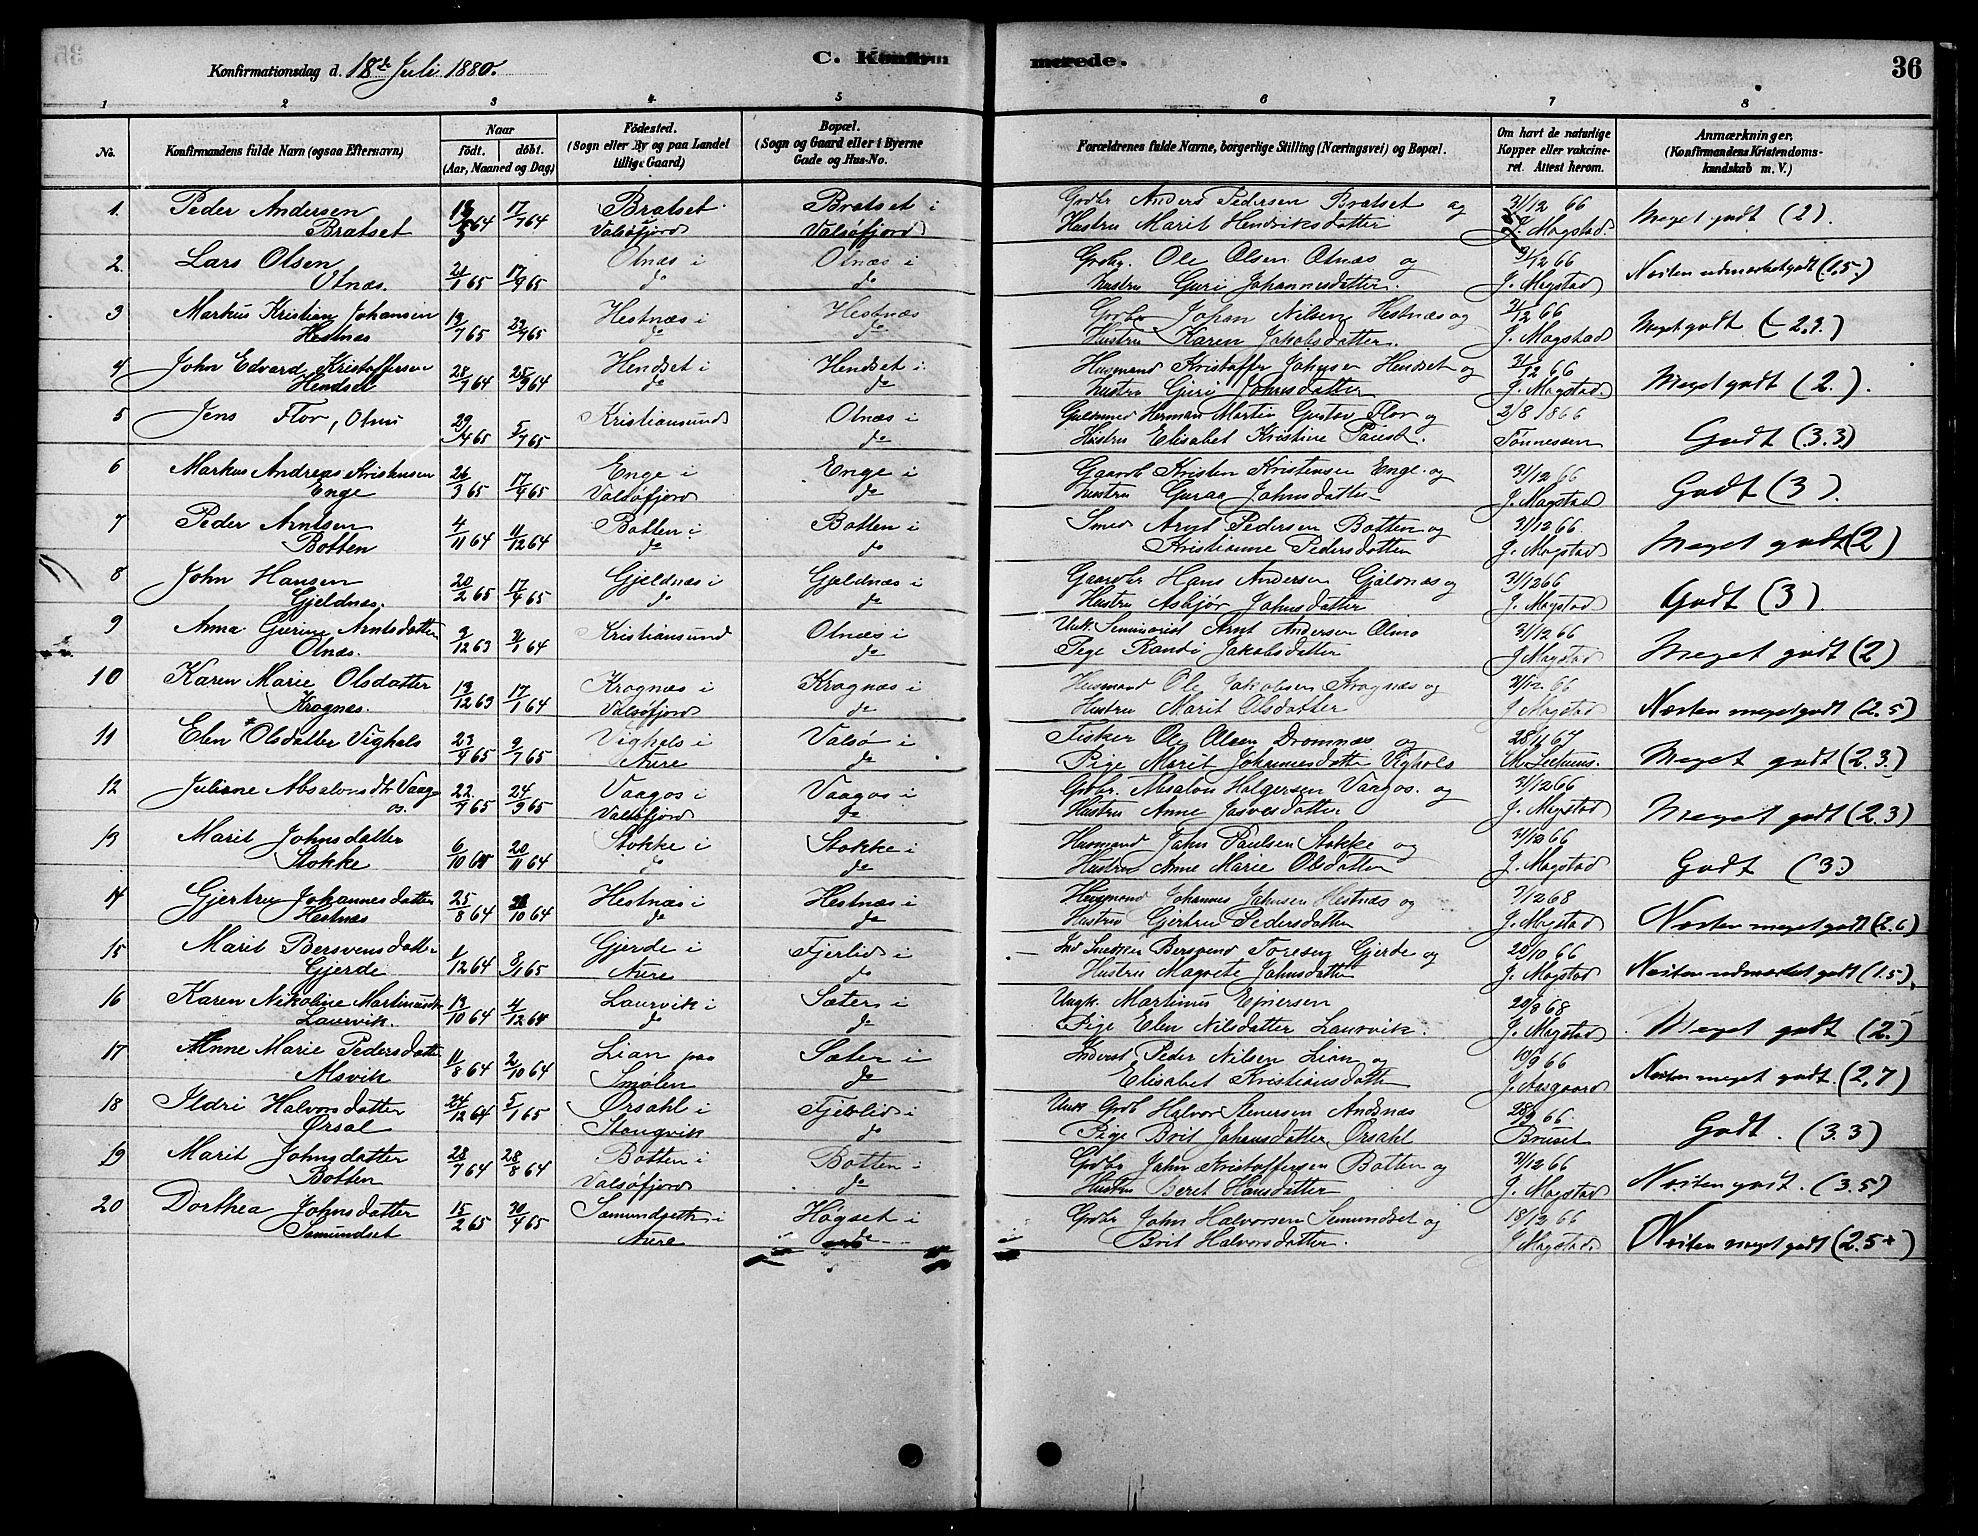 Konfirmationsdag d. 18de Juli 1880.
C. Konfirmerede.
36
1 2 3 4 5 6 7 8
No.
Konfirmandens fulde Navn (ogsaa Efternavn)
Naar
födt. döbt.
(Aar, Maaned og Dag)
Födested.
(Sogn eller By og paa Landet
tillige Gaard)
Bopæl.
(Sogn og Gaard eller i Byerne
Gade og Hus-No.
Forældrenes fulde Navne, borgerlige Stilling (Næringsvei) og Bopæl.
Om havt de naturlige
Kopper eller vakcine-
ret. Attest herom.
Anmærkninger.
(Konfirmandens Kristendoms-
kundskab m. V.)
1. Peder Andersen 17/7 64 Bratset Bratset i Grdbr Anders Pedersen Bratset og 31/12 66 Meget godt (2).
Bratset Valsøfjord Valsøfjord Hustru Marit Hendriksdatter J. Magstad
2. Lars Olsen 21/1 65 17/9 65 Otnæs i Otnæs i Grdbr. Ole Olsen Otnæs og 31/12 66 Næsten udmærket godt (1.5.)
Otnæs. do do Hustru Guri Johannesdatter. J. Magstad
3 Markus Kristian Johansen 13/7 65 23/9 65 Hestnæs i Hestnæs Grdbr Johan Nilsen Hestnæs og 31/12 66 Meget godt (-2.3.)
Hestnæs do do Hustru Karen Jakobsdatter. J. Magstad
4 John Edvard Kristoffersen 28/7 64 25/9 64 Hendset i Hendset i Husmand Kristoffer Johnsen Hendset og 31/12 66 Meget godt (2.).
Hendset do do Hustru Guri Johnsdatter J. Magstad.
5 Jens Flor, Otnæs 29/4 65 5/7 65 Kristiansund Otnæs i Guldsmed Herman Martin Gustav Flor og 2/8 1866 Godt (3.3)
do Hustru Elisabet Kristine Paust. Tønnessen
6 Markus Andreas Kristensen 26/3 65 17/4 65 Enge i Enge i Gaardb Kristen Kristensen Enge og 31/12 66 Godt (3).
Enge Valsøfjord do Hustru Guraa Johnsdatter J. Magstad
7 Peder Arntsen 4/11 64 11/12 64 Botten i Botten i Smed Arnt Pedersen Botten og 31/12 66 Meget godt (2)
Botten do do Kristianne Pedersdatter J. Magstad
8 John Hansen 20/2 65 17/4 65 Gjeldnæs i Gjeldnæs i Gaardbr Hans Andersen Gjeldnæs og 31/12 66 Godt (3)
Gjeldnæs. do do Hustru Asbjør Johnsdatter J. Magstad
9 Anna Gurine Arntsdatter 9/12 63 31/1 64 Kristiansund Otnæs i Unk. Seminarist Arnt Andersen Olmo 31/12 66 Meget godt (2)
Otnæs. do Pige Randi Jakobsdatter J. Magstad
10 Karen Marie Olsdatter 13/12 63 17/1 64 Krognæs i Krognæs i Husmand Ole Jakobsen Krognæs og 31/12 66 Næsten meget godt (2.5)
Krognæs. Valsøfjord do Hustru Marit Olsdatter J Magstad
11 Elen Olsdatter Vighals 23/4 65 9/7 65 Vighals i Valsø i Fisker Ole Olsen Dromnæs og 28/11 67 Meget godt (2.3.)
Aure do Pige Marit Johannesdatter Vighals
12 Juliane Absalonsdtr Vaag- 22/7 65 24/9 65 Vaagos i Vaagos i Grdbr. Absalon Holgersen Vaagos. og 31/12 66 Meget godt (2.3)
os. Valsøfjord do. Hustru Anne Jasvesdatter J. Magstad
13 Marit Johnsdatter 6/10 64 20/11 64 Stokke i Stokke i Husmand John Paulsen Stokke og 31/12 66 Godt (3.)
Stokke do do Hustru Anne Marie Olsdatter J. Magstad
14 Gjertru Johannesdatter 25/8 64 10 64 Hestnæs i Hestnæs i Husmand Johannes Johnsen Hestnæs og 7/12 68 Næsten meget godt (2.6)
Hestnæs do do Hustru Gjertru Pedersdatter J. Magstad
15 Marit Bersvensdatter 1/12 64 8/1 65 Gjerde i Fjerlid i Ind. Snedker Bersvend Toresen Gjerde og 29/10 66 Næsten udmærket godt (1.5).
Gjerde Aure do Hustru Magrete Johnsdatter J. Magstad
16 Karen Nikoline Martinusdtr 13/10 64 4/12 64 Laurvik i Sæter i Ungk. Martinus Ejnersen 29/8 68 Meget godt (2.)
Laurvik. do do Pige Elen Nilsdatter Laurvik. J. Magstad
17 Anne Marie Pedersdatter 11/8 64 2/10 64 Lian paa Sæter i Inderst Peder Nilsen Lian og 10/9 66 Næsten meget godt (2,7)
Alsvik Smølen do Elisabet Kristiansdatter J. Aargaard
18 Ildri Halvorsdatter 24/12 64 5/1 65 Ørsahl i Fjerlid i Unk Grdb Halvor Stenersen Andsnæs 28/9 66 Godt. (3.3)
Ørsal Stangvik do Pige Brit Johansdatter Ørsahl Bruset
19 Marit Johnsdatter 28/7 64 28/8 64 Botten i Botten i Grdbr John Kristoffersen Botten og 31/12 66 Næsten godt. (3.5)
Botten Valsøfjord do Hustru Beret Hansdatter J. Magstad
20 Dorthea Johnsdatter 15/2 65 30/4 65 Samundseth i Høgset i Grdbr John Halvorsen Semundset og 18/12 66 Næsten meget godt (2.5+)
Samundset Aure do Brit Halvorsdatter. J Magstad.